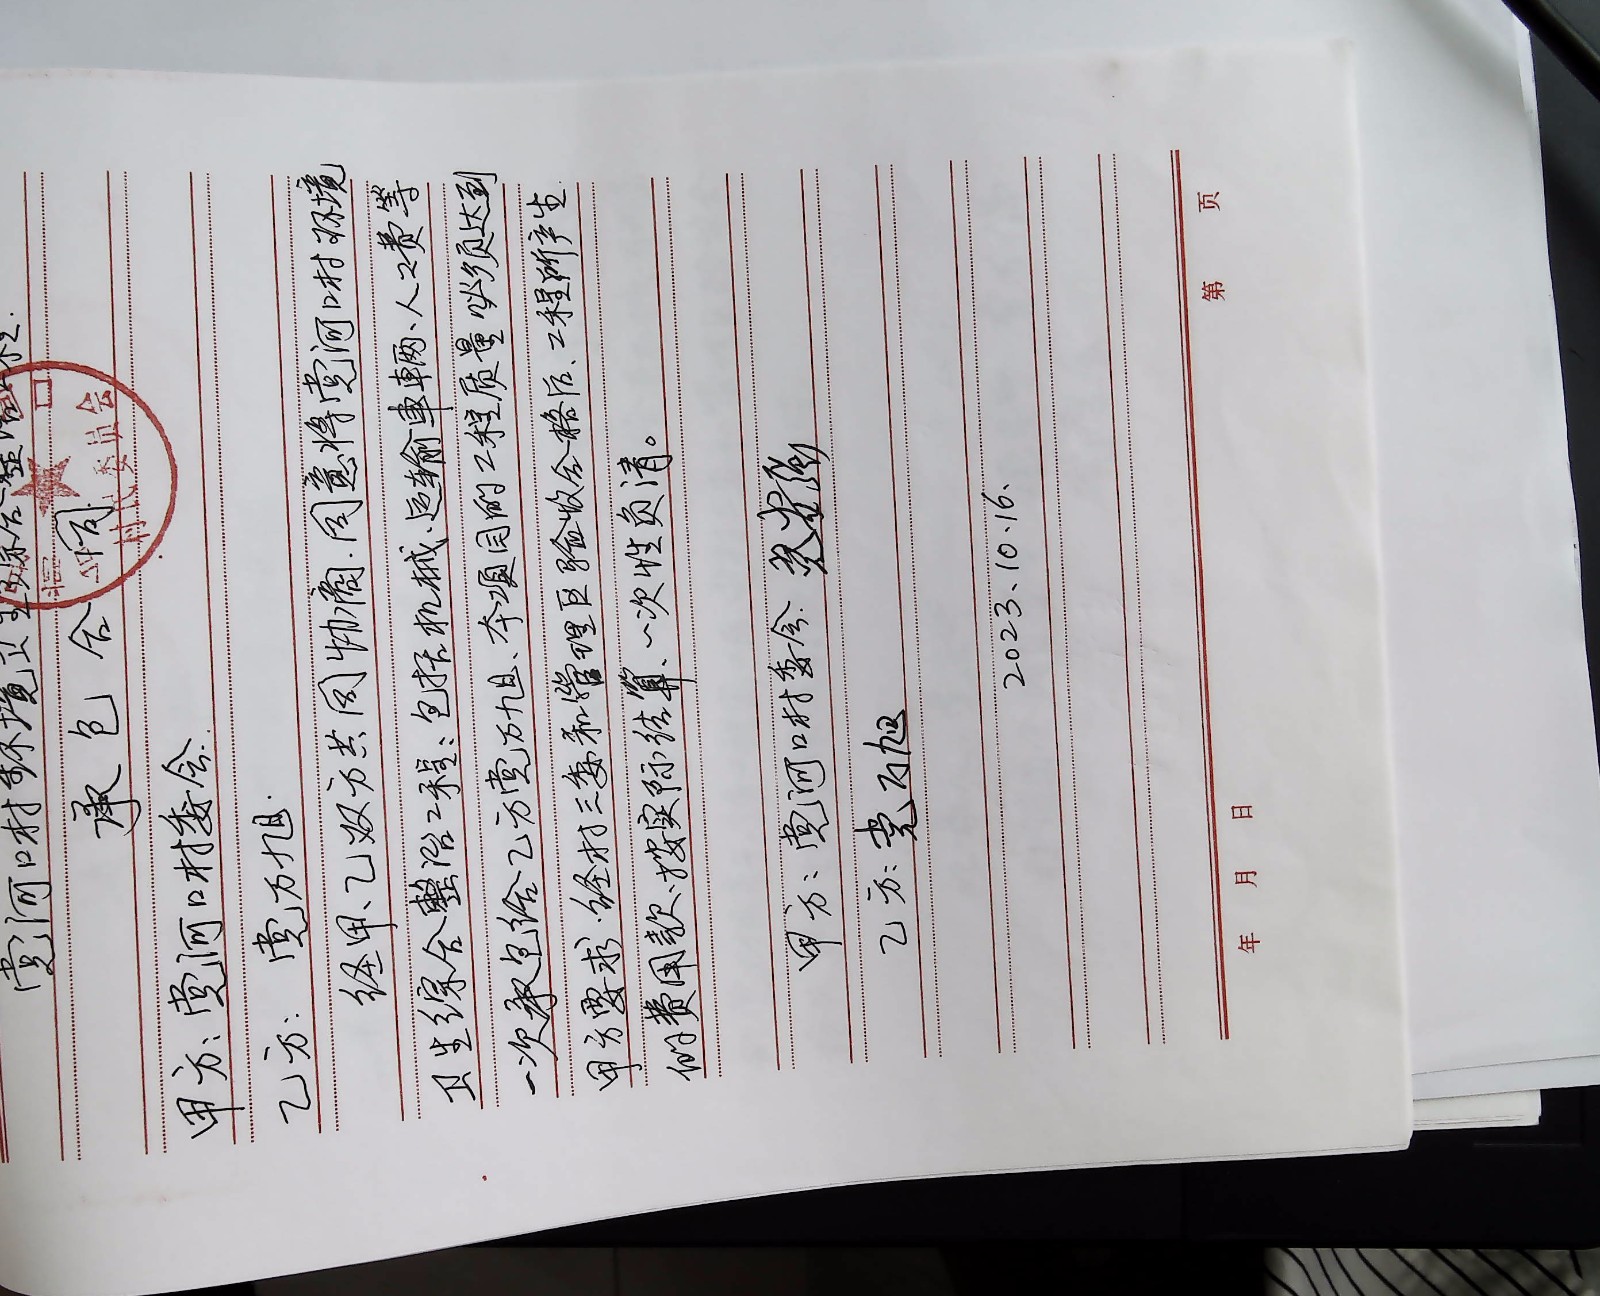 党河口村环境卫生综合整治工程
承包合同
村民委员会
甲方：党河口村委会.
乙方：党万旭.
经甲、乙双方共同协商.同意将党河口村环境
卫生综合整治工程：包括机械、运输车辆、人工费等
一次承包给乙方党万旭、本项目的工程质量必须达到
甲方要求.经村三委和管理区验收合格后、工程所产生
的费用款、按实际结算、一次性负清。
甲方：党河口村委会
乙方：党万旭
2023.10.16.
第 页
年 月 日